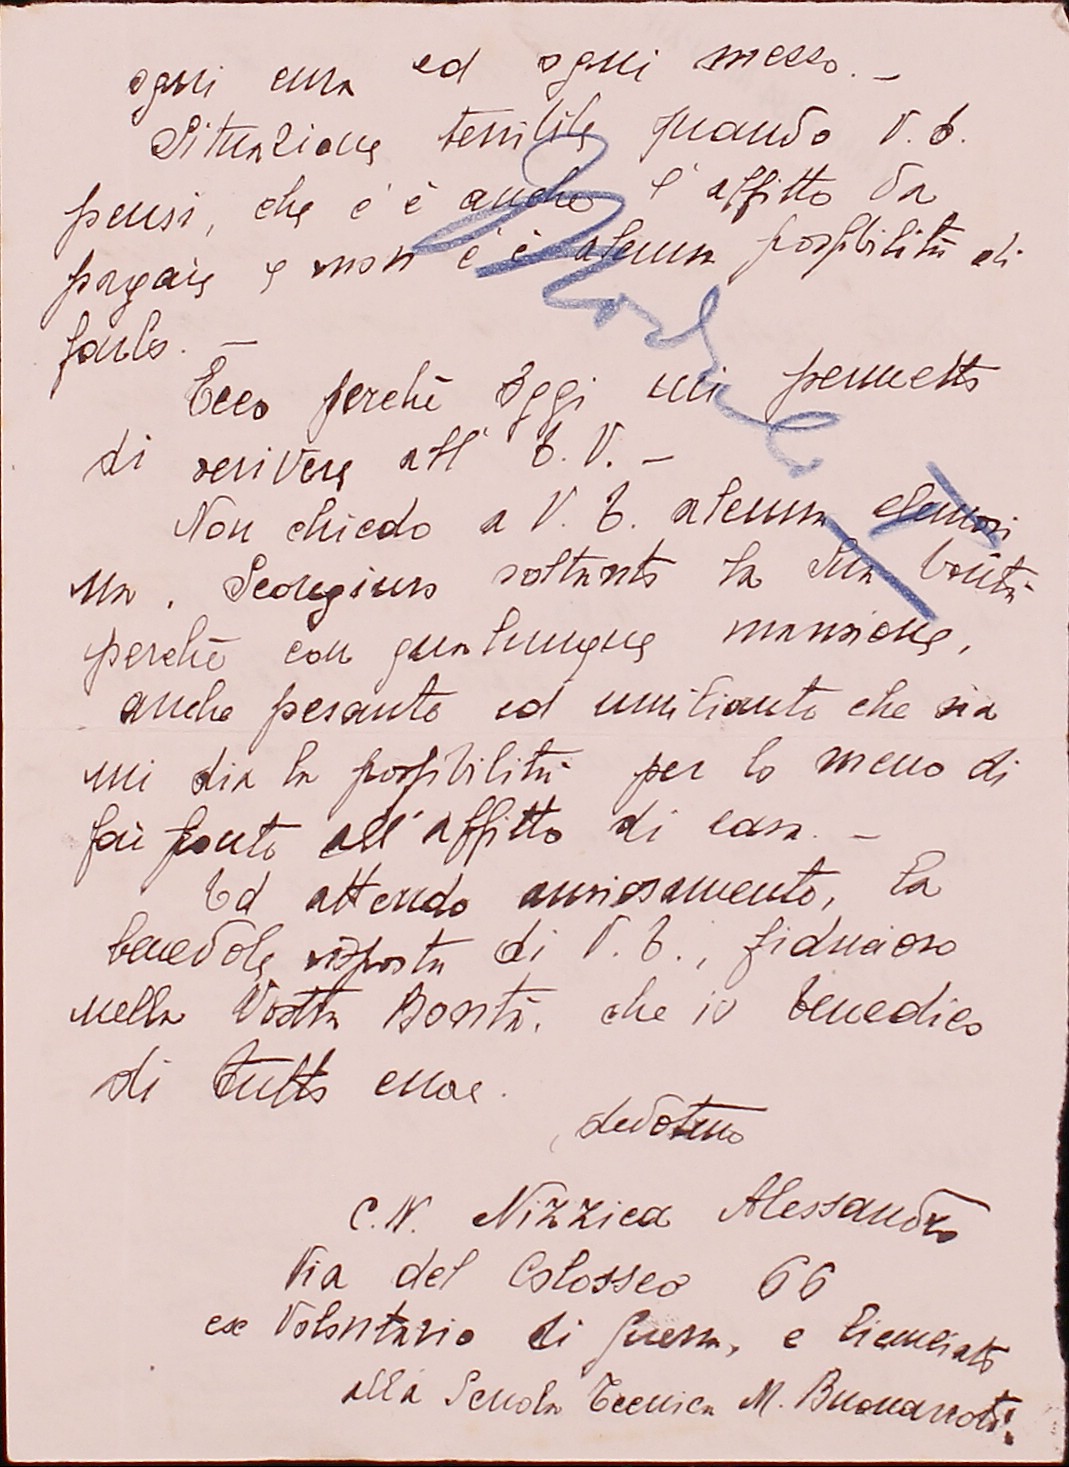 ogni cura ed ogni mezzo. –
Situazione terribile quando V. E.
pensi, che c'è anche l'affitto da
pagare e non c'è alcuna possibilità di
farlo. –
Ecco perché oggi mi permetto
di scrivere all' E. V. –
Non chiedo a V. E. alcuna elemosi
na. Scongiuro soltanto la Sua bontà
perché con qualunque mansione,
anche pesante ed umiliante che sia
mi dia la possibilità per lo meno di
far fronte all'affitto di casa. –
Ed attendo ansiosamente, la
benevole risposta di V. E., fiducioso
nella Vostra Bontà, che io benedico
di tutto cuore.
devotmo
C. N. Nizzica Alessandro
Via del Colosseo 66
ex Volontario di guerra, e licenziato
alla Scuola Tecnica M. Buonarroti.